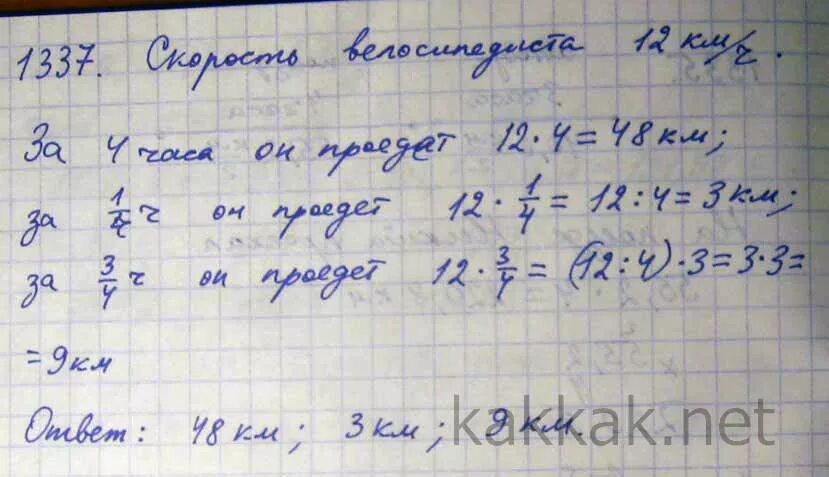 1337. Скорость велосипедиста 12 км/ч.
За 4 часа он проедет 12 · 4 = 48 км;
за 1/4 ч он проедет 12 · 1/4 = 12 : 4 = 3 км;
за 3/4 ч он проедет 12 · 3/4 = (12 : 4) · 3 = 3 · 3 =
= 9 км
Ответ: 48 км; 3 км; 9 км.
kakkak.net